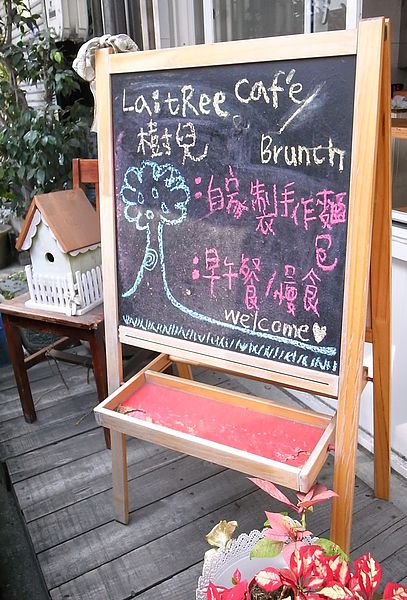 LaitRee café / Brunch
樹兒
:自家製手作麵包
:早午餐/慢食
welcome♡